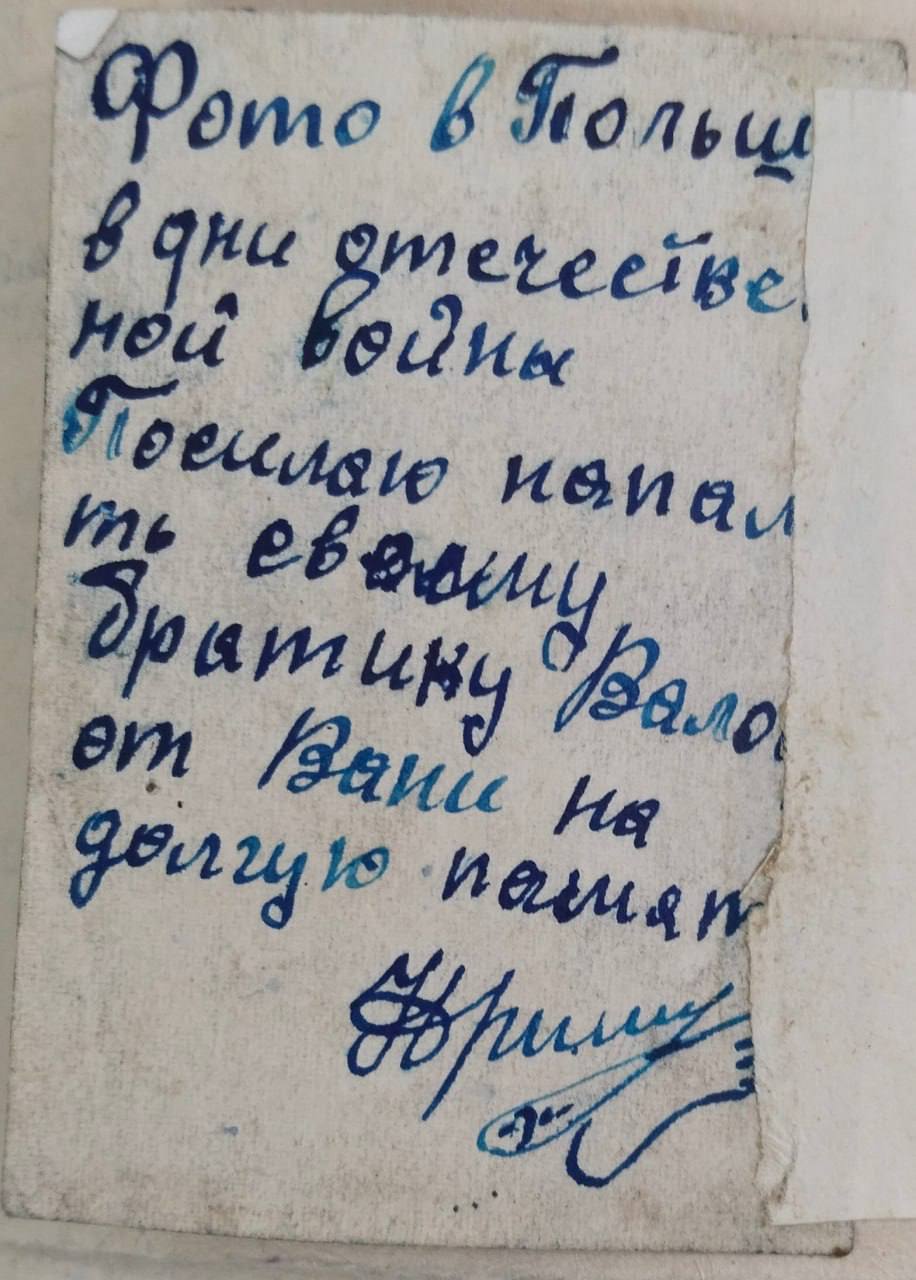 Фото в Польш
в дни отечестве
ной войны
Посилаю напам
ть евоему
братику Вало
от Вани на
долгую памят